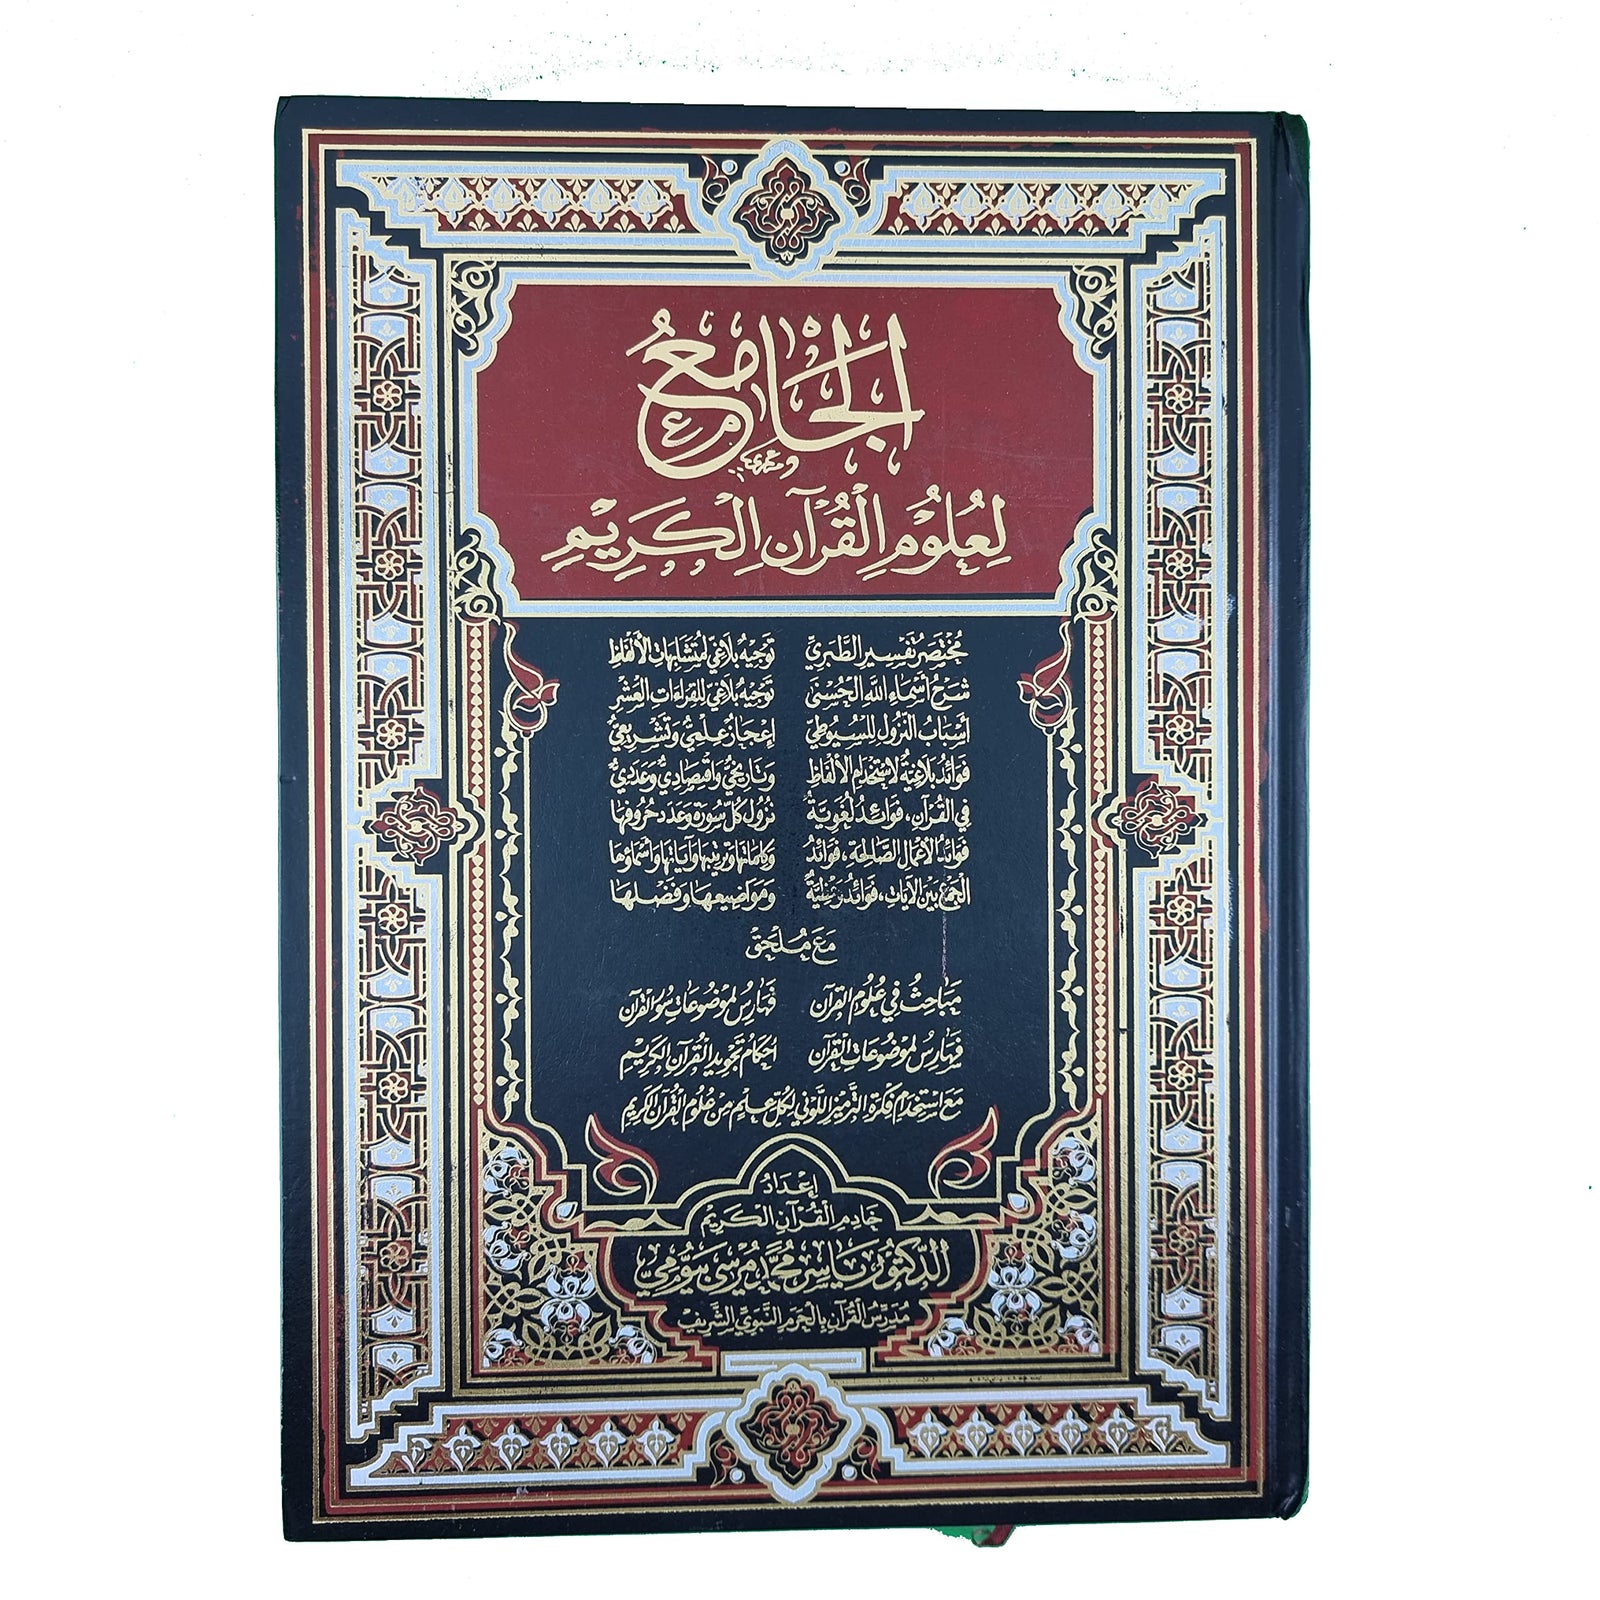 الجَامِعُ
لِعُلُومِ الْقُرْآنِ الْكَرِيمِ
مُخْتَصَرُ تَفْسِيرِ الطَّبَرِيِّ
شَرْحُ أَسْمَاءِ اللَّهِ الْحُسْنَى
أَسْبَابُ النُّزُولِ لِلسُّيُوطِيِّ
فَوَائِدُ بَلَاغِيَّةٌ لِاسْتِخْدَامِ الْأَلْفَاظِ
فِي الْقُرْآنِ، فَوَائِدُ لُغَوِيَّةٌ
فَوَائِدُ الْأَعْمَالِ الصَّالِحَةِ، فَوَائِدُ
الْجَمْعِ بَيْنَ الْآيَاتِ، فَوَائِدُ
تَوْجِيهٌ بَلَاغِيٌّ لِمُتَشَابِهَاتِ الْأَلْفَاظِ
تَوْجِيهٌ بَلَاغِيٌّ لِلْقِرَاءَاتِ الْعَشْرِ
إِعْجَازٌ عِلْمِيٌّ وَتَشْرِيعِيٌّ
وَتَارِيخِيٌّ وَاقْتِصَادِيٌّ وَعَدَدِيٌّ
نُزُولُ كُلِّ سُورَةٍ وَعَدَدُ حُرُوفِهَا
وَكَلِمَاتِهَا وَتَرْتِيبِهَا وَآيَاتِهَا وَأَسْمَاؤُهَا
وَمَوَاضِيعُهَا وَفَضْلُهَا
مَعَ مُلْحَقِ
مَبَاحِثُ فِي عُلُومِ الْقُرْآنِ
فَهَارِسُ لِمَوْضُوعَاتِ الْقُرْآنِ
فَهَارِسُ لِمَوْضُوعَاتِ سُوَرِ الْقُرْآنِ
أَحْكَامُ تَجْوِيدِ الْقُرْآنِ الْكَرِيمِ
مَعَ اسْتِخْدَامِ فِكْرَةِ التَّرْمِيزِ اللَّوْنِي لِكُلِّ عِلْمٍ مِنْ عُلُومِ الْقُرْآنِ الْكَرِيمِ
إِعْدَادُ
خَادِمِ الْقُرْآنِ الْكَرِيمِ
الدُّكْتُورُ يَاسِر مُحَمَّد مُرْسِي بَيُّومِي
مُدَرِّسُ الْقُرْآنِ بِالْحَرَمِ النَّبَوِيِّ الشَّرِيفِ